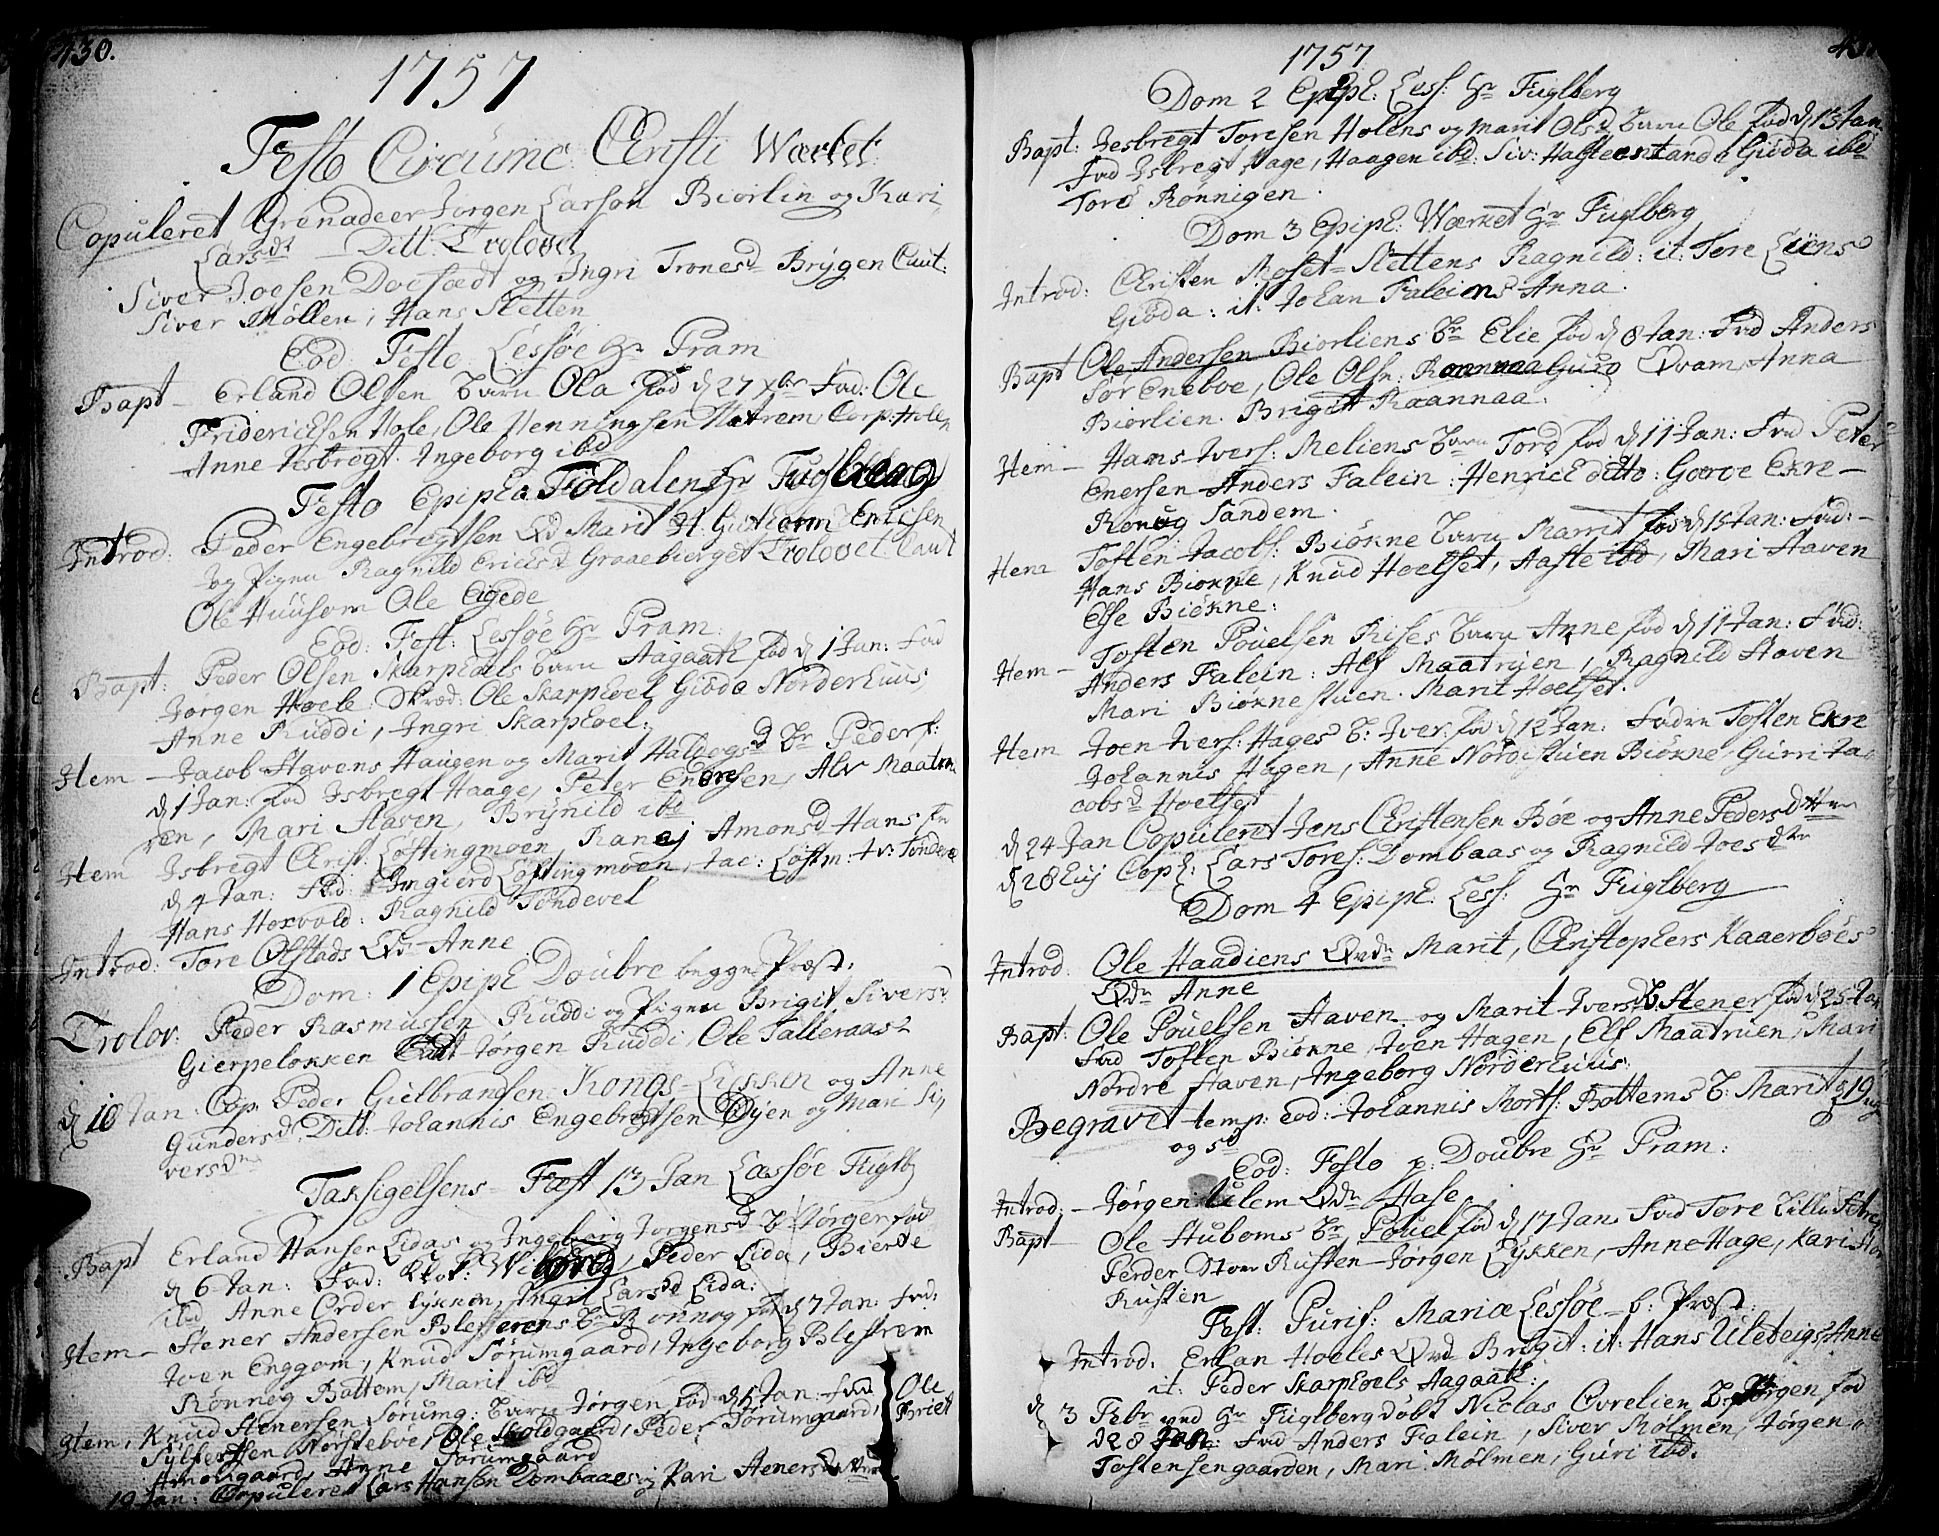 430.
1757
Festo Circumc: Christi Wærket
Copuleret Grenadeer Jorgen Larsøn Biorlin og Kari
Larsdt Ditt. Trolovet
Siver Joesen Doesædt og Ingri Tronesd Brygen Caut:
Siver Møllen, Hans Stetten
Eod: Festo Lessøe Hr Pram
Bapt - Erland Olsen barn Ola fød d 27 xbr Fad: Ole
Fridericksen Hole, Ole Henningsen Natrem, Corp: Holen
Anne Isbregt. Ingeborg ibd
Festo Epipha Foldalen Hr Fuglberg
Introd: Peder Engebregtsen Qd Marit
og Pigen Ragnild Ericksd Graaeberget Trolovet Caut
Ole Huusom Ole Eigede
Eod: Fest: Lessøe Hr Pram
Bapt: Peder Olsen Skarphoels barn Aagaath fød d 1 Jan: Fad
Jorgen Hoele Skræd: Ole Skarphoel Giöda Norderhuus,
Anne Ruddi, Ingri Skarphoel:
Item - Jacob Stavens Haugen og Marit Haldorsd Br Peder f:
d 1 Jan: Fad Isbregt Haage, Peter Enersen, Alv Maatru
en, Mari Staven, Brynild ibd
Item Isbregt Christ: Loftingmoen Ranej Amonsd Hans fø
d 4 Jan: Fad: Ingierd Loftingmoen, Jac: Loftm: Tv: Tondevel
Hans Horvold: Ragnild Tondevel
Introd: Tore Olstads Qd Anne
Dom: 1 Epiph Doubre begge Præst:
Trolov: Peder Rasmussen Ruddi og Pigen Brigit Siversd
Gierpeløkken Caut Jørgen Ruddi, Ole Talleraas
d 10 Jan: Cop: Peder Gulbransen Kongs-Likken og Anne
Gundersd. Ditt: Johannis Engebretsen Øyen og Mari Si,
versdr
Taksigelsens Fæst 13 Jan Læssøe Fuglb
Bapt Erland Hansen Lidas og Ingeborg Jorgensd B: Jørgen fød
d 6 Jan: Fad: Peder Lida, Bierte
ibd Anne Order Lykken, Ingri Larsd Lida:
Item - Stener Andersen Br Ronnog fød d 7 Jan: Fad:
Joen Enggom, Knud Sørumgaard, Ingeborg Blestrem
Rønnog Bottem, Marit ibd
Item, Knud Stenersen Sørumg: barn Jørgen, fød d 5 Jan: Fad Ole
Sylfesten Norsteboe, Ole Skoldgaard, Peder Sorumgaard, Briet
Anne Sørumgaard
19 Jan: Copuleret Lars Hansen Dombaaes og Kari Stenersdatter
1757
Dom 2 Epiph: Less: Hr Fuglberg
Bapt: Jesbregt Toresen Holens og Marit Olsd barn Ole fød d 13 Jan.
Fad Isbregt Hage, Haagen ibd: Siv: Giöda ibd
Tore Rønnigen.
Dom 3 Epiph: Wærket Hr Fuglberg
Introd: Christen Moset-Stettens Ragnild: it: Tore Liens
Giöda: it: Johan Faleins Anna.
Bapt Ole Andersen Biorliens Br Elie fød d 8 Jan: Fad Anders
Sør Eneboe, Ole Olsn: Raannaa Gurj Qvam, Anna
Biorlien. Brigit Raannaa.
Item - Hans Ivers: Meliens barn Tore fød d 11 Jan: Fad Peter
Enersen Anders Falein: Henrich ditto: Goroe Ekre -
Ronug Sandem.
Item Tosten Jacobs: Biokne barn Marrit fød d 15 Jan: Fad: -
Hans Biokne, Knud Hoelset, Aaste ibd, Mari Staven
Else Biokne:
Item - Tosten Pouelsen Rises barn Anne fød d 11 Jan: Fad:
Anders Falein: Alf Maatruen, Ragnild Staven
Mari Bioknestuen. Marit Hoelset.
Item Joen Ivers: Hages B: Iver. fød d 12 Jan: Fadre Tosten Ekre
Johannis Hagen, Anne Nordistuen Biokne, Gurri Ja
cobsd Hoelset
d 24 Jan Copuleret Jens Christensen Böe og Anne Pedersd
d 28 Ejusd Coph: Lars Tores: Dombaas og Ragnild Joesdtr
Dom 4 Epiph. Less: Hr Fuglberg
Introd: Ole Haadiens Qvdn Marit, Christophers Kaaerböes
Qvdn Anne
Bapt: Ole Pouelsen Staven og Marit Iversd B. Stener fød d 25 Jan
Fad Tosten Biokne, Joen Hagen, Elf Maatruen, Mari
Nordre Staven, Ingeborg Norderhuus:
Begravet temp: eod: Johannis Morts: Bottems B: Marit 19 ug
og 5d
Eod: Festo p: Doubre Hr Pram:
Introd: - Jørgen Ulem Qvdn Hase,
Bapt - Ole Stuboms Br Pouel fød d 17 Jan Fad Tore Lille
Perder Stor Rusten Jørgen Lykken, Anne Hage, Kari Stor
Rusten
Fest: Purif: Mariæ Lessøe b: Præst:
Introd: Erlan Hoeles Qvd Brigit: it: Hans Uleteigs Anne
it: Peder Skarphoels Aagaath:
d 3 Febr ved Hr Fuglberg döbt Niclas Ovrelien B: Jørgen fød
d 28 Jan: Fad Anders Falein, Siver Mølmen, Jørgen
Tostensengaarden, Mari Mølmen, Guri ibd.